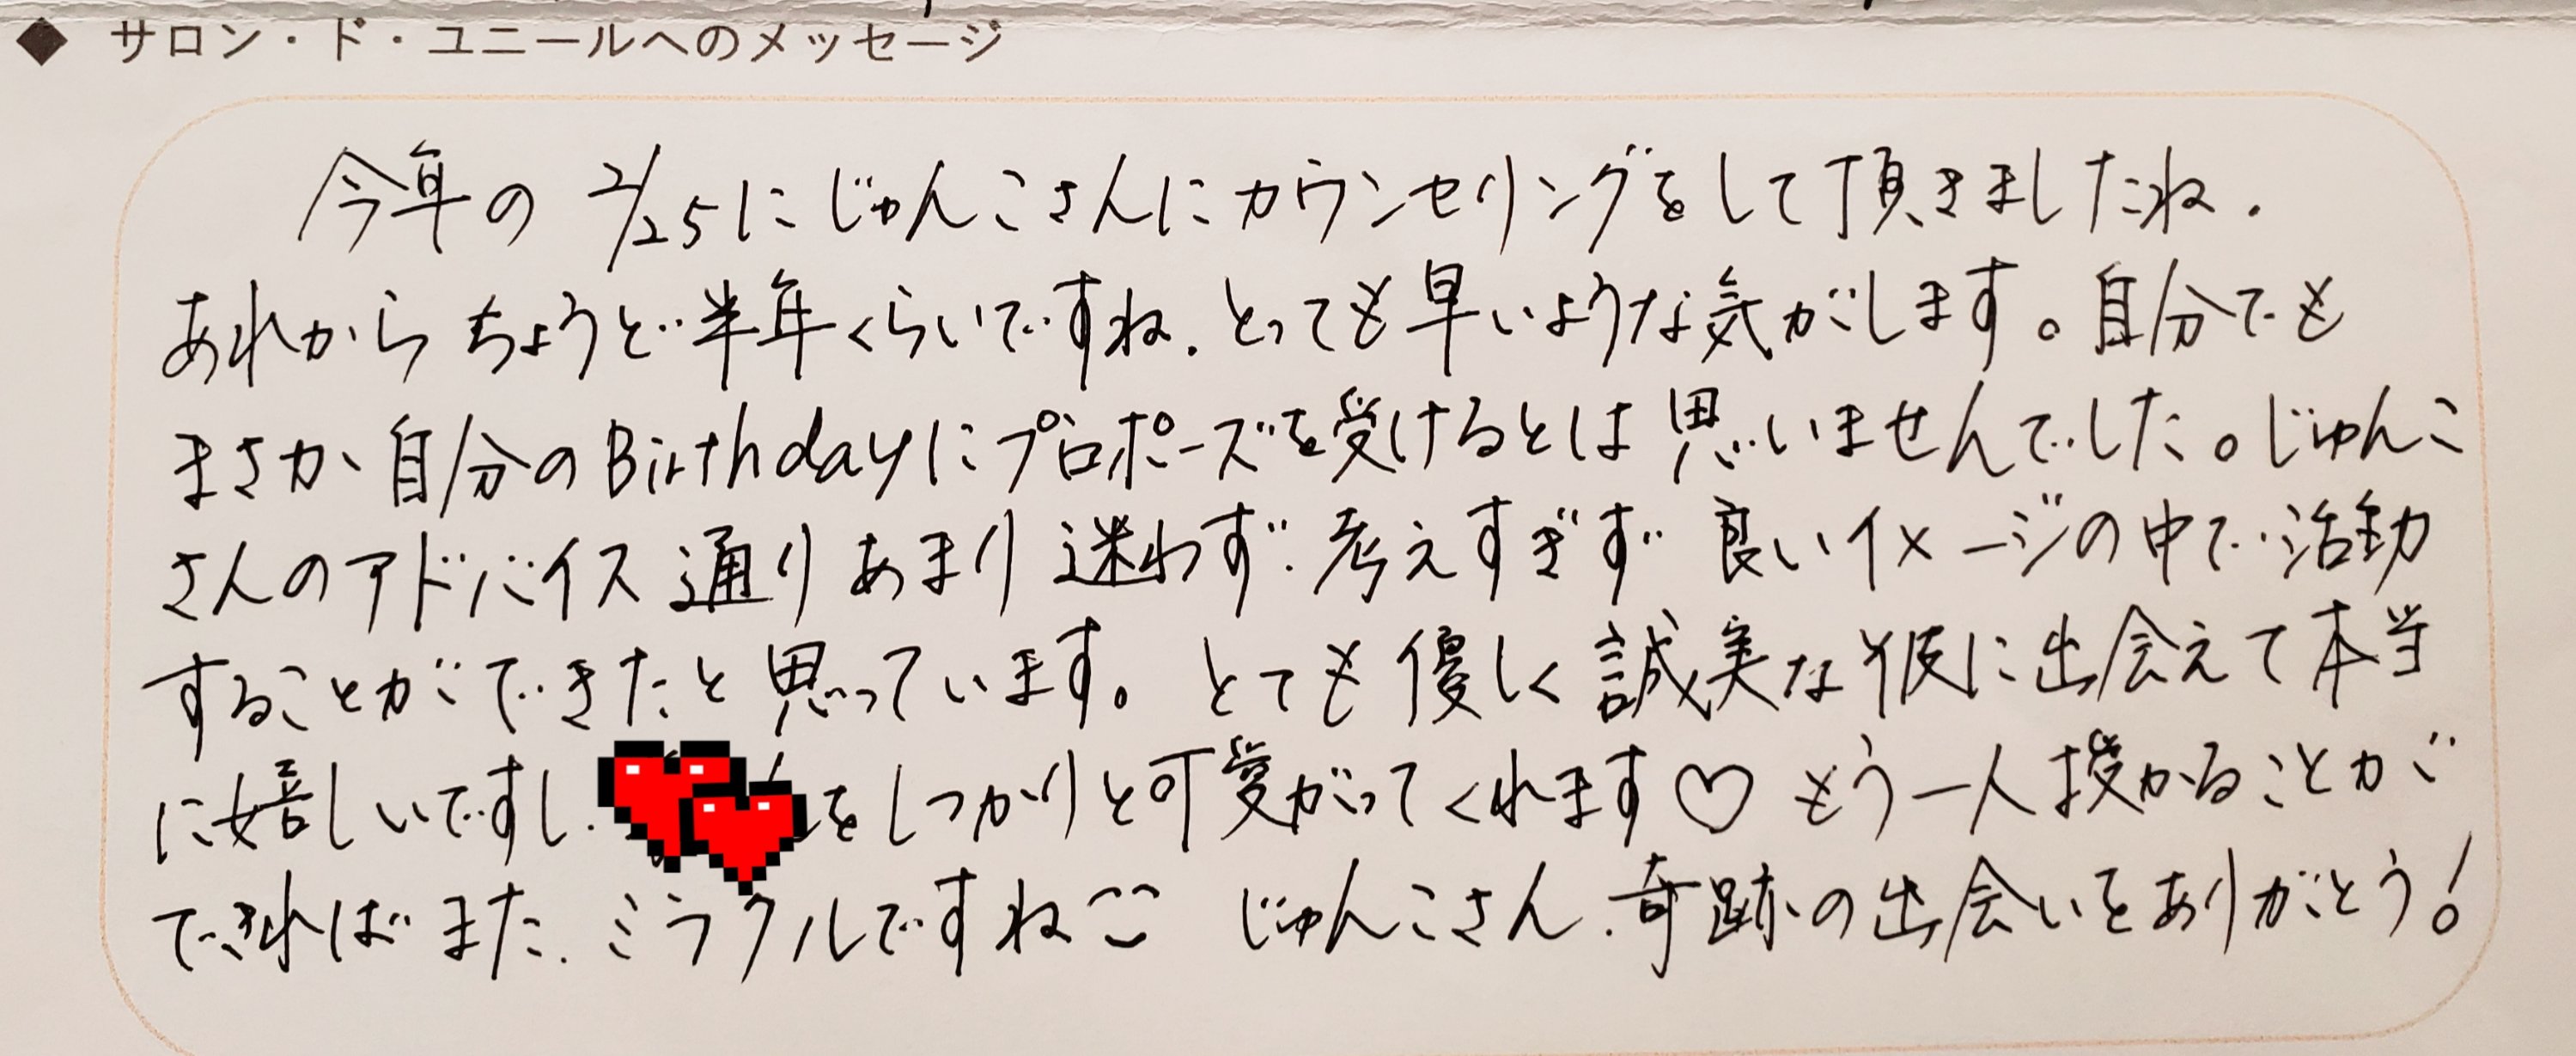 ◆ サロン・ド・ユニールへのメッセージ
今年の 2/25にじゅんこさんにカウンセリングをして頂きましたね.
あれからちょうど半年くらいですね. とっても早いような気がします。自分でも
まさか自分のBirthdayにプロポーズを受けるとは思いませんでした。じゅんこ
さんのアドバイス通りあまり迷わず. 考えすぎず 良いイメージの中で活動
することができたと思っています。 とても優しく誠実な彼に出会えて本当
に嬉しいですし. をしっかりと可愛がってくれます♡ もう一人授かることが
できればまた. ミラクルですね じゅんこさん. 奇跡の出会いをありがとう!